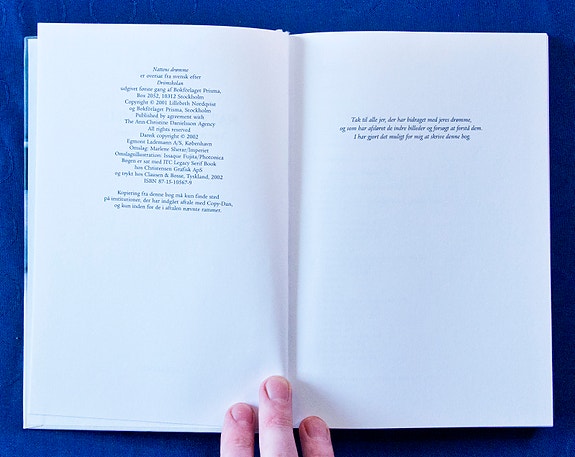 Nattens drømme
er oversat fra svensk efter
Drömskolan
udgivet første gang af Bokförlaget Prisma,
Box 2052, 10312 Stockholm
Copyright © 2001 Lillebeth Nordqvist
og Bokförlaget Prisma, Stockholm
Published by agreement with
The Ann-Christine Danielsson Agency
All rights reserved
Dansk copyright © 2002
Egmont Lademann A/S, København
Omslag: Marlene Sherar/Imperiet
Omslagsillustration: Issaque Fujita/Photonica
Bogen er sat med ITC Legacy Serif Book
hos Christensen Grafisk ApS
og trykt hos Clausen & Bosse, Tyskland, 2002
ISBN 87-15-10567-9
Kopiering fra denne bog må kun finde sted
på institutioner, der har indgået aftale med Copy-Dan,
og kun inden for de i aftalen nævnte rammer.
Tak til alle jer, der har bidraget med jeres drømme,
og som har afsløret de indre billeder og forsøgt at forstå dem.
I har gjort det muligt for mig at skrive denne bog.